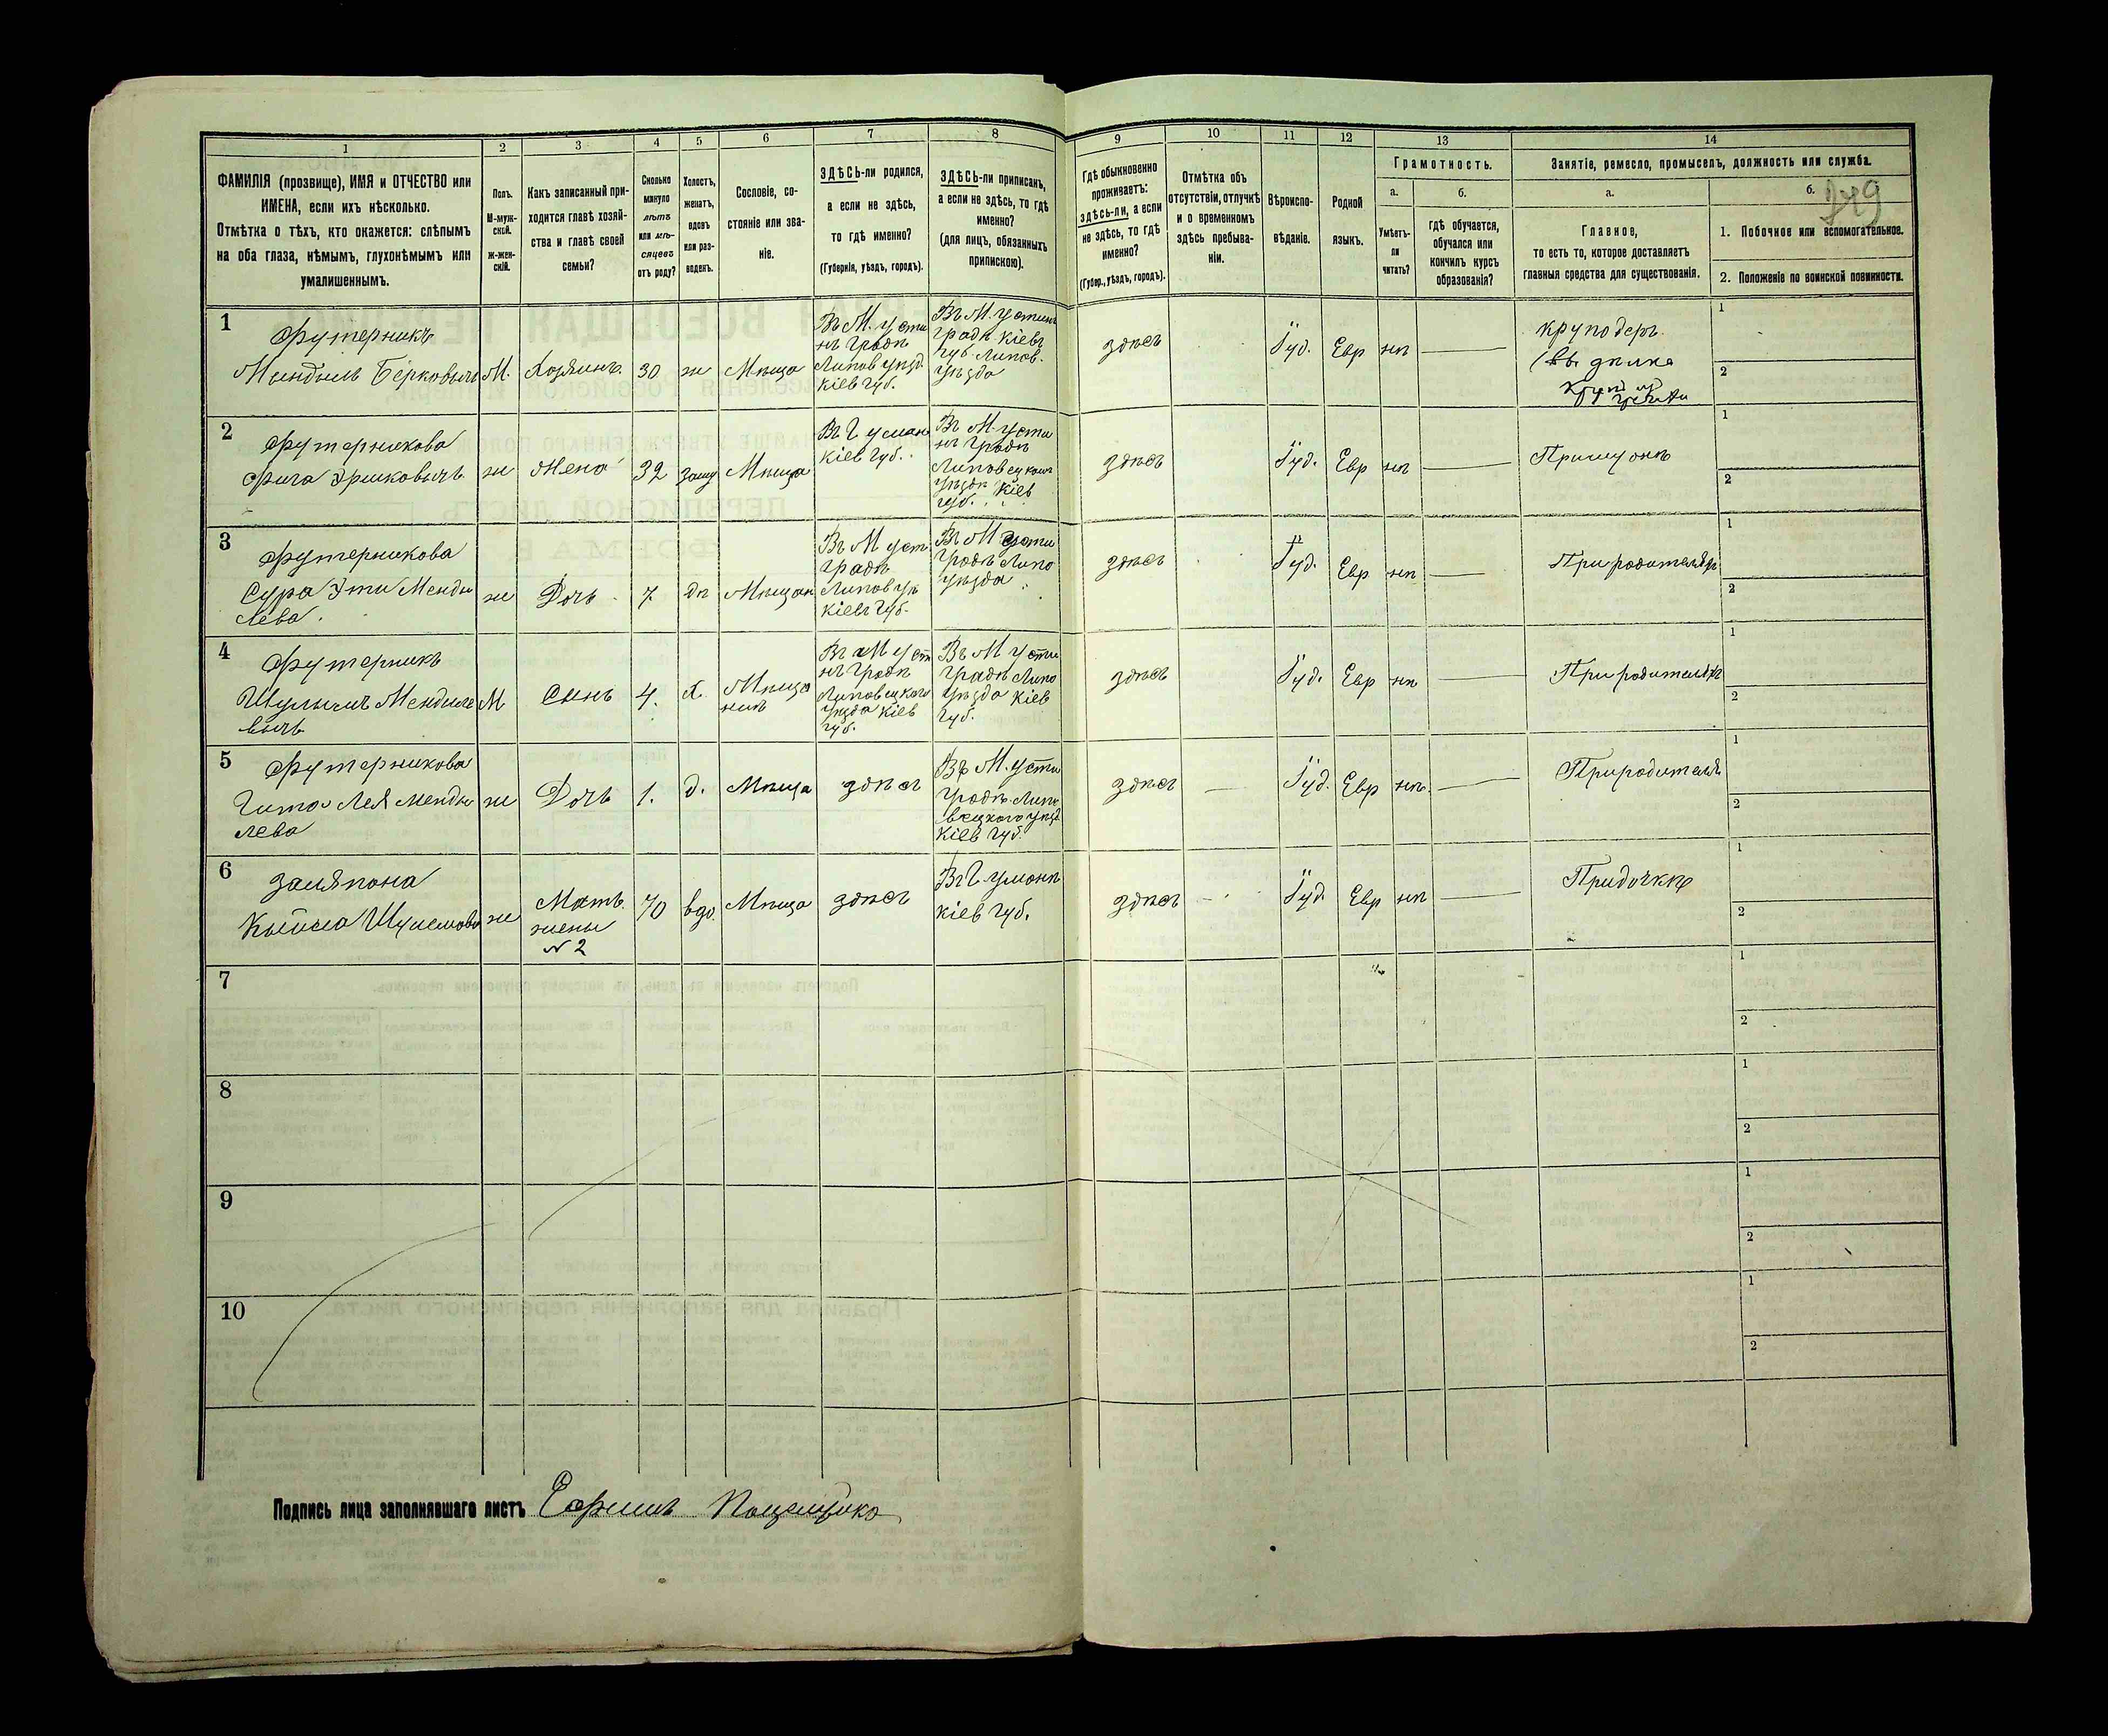 1
2
3
4
5
6
7
8
9
10
11
12
13
14
ФАМИЛІЯ (прозвище), ИМЯ и ОТЧЕСТВО или
ИМЕНА, если ихъ нѣсколько.
Отмѣтка о тѣхъ, кто окажется: слѣпымъ
на оба глаза, нѣмымъ, глухонѣмымъ или
умалишеннымъ.
Полъ.
М-муж-
ской.
Ж-жен-
скій.
Какъ записанный при-
ходится главѣ хозяй-
ства и главѣ своей
семьи?
Сколько
минуло
лѣтъ
или мѣ-
сяцевъ
отъ роду?
Холостъ,
женатъ,
вдовъ
или раз-
веденъ.
Сословіе, со-
стояніе или зва-
ніе.
ЗДѢСЬ-ли родился,
а если не здѣсь,
то гдѣ именно?
(Губернія, уѣздъ, городъ).
ЗДѢСЬ-ли приписанъ,
а если не здѣсь, то гдѣ
именно?
(для лицъ, обязанныхъ
припискою).
Гдѣ обыкновенно
проживаетъ:
здѣсь-ли, а если
не здѣсь, то гдѣ
именно?
(Губер., уѣздъ, городъ).
Отмѣтка объ
отсутствіи, отлучкѣ
и о временномъ
здѣсь пребыва-
ніи.
Вѣроиспо-
вѣданіе.
Родной
языкъ.
Грамотность.
а.
Умѣетъ-
ли
читать?
б.
Гдѣ обучается,
обучался или
кончилъ курсъ
образованія?
Занятіе, ремесло, промыселъ, должность или служба.
а.
Главное,
то есть то, которое доставляетъ
главныя средства для существованія.
б.
249
1. Побочное или вспомогательное.
2. Положеніе по воинской повинности.
1
Футерникъ
Мындыль Берковычъ
М.
Хозяинъ.
30
ж
Мѣща
Въ М. Усти
нъ Градѣ
Липов уѣзд
Кіев Губ.
Въ М. Устин
Градѣ Кіевъ
Губ. Липов.
Уѣзда
здѣсь
Іуд.
Евр
нѣ
круподеръ.
1
2
2
Футерникова
ж
Жена
32
заму
Мѣща
Въ Г Умань
Кіев Губ.
Въ М Усти
нъ Градѣ
Липовецкаго
Уѣзда Кіев
Губ.
здѣсь
Іуд.
Евр
нѣ
При мужѣ
1
2
3
Футерникова
Сура Эти Менды
лева
ж
Дочь
7
дѣ
Мѣщан
Въ М Уст
Градѣ
Липов Уѣ
Кіевъ Губ.
Въ М Усти
Градѣ Липо
Уѣзда
здѣсь
Іуд.
Евр
нѣ
При родителях
1
2
4
Футерникъ
М
Сынъ
4.
х.
Мѣща
нинъ
Въ М Усти
нъ Градѣ
Липовецкаго
Уѣзда Кіев
Губ.
Въ М Усти
Градѣ Липо
Уѣзда Кіев
Губ.
здѣсь
Іуд.
Евр
нѣ
При родителях
1
2
5
Футерникова
Гита Лея Менды
лева
ж
Дочь
1.
д.
Мѣща
здѣсь
Въ М. Усти
Градѣ Липо
вецкого Уѣзд
Кіев Губ.
здѣсь
Іуд.
Евр
нѣ
При родителя
1
2
6
ж
Мать
жены
№ 2
70
вдо.
Мѣща
здѣсь
Въ Г. Уманѣ
Кіев Губ.
здѣсь
Іуд.
Евр
нѣ
При дочкѣ
1
2
7
1
2
8
1
2
9
1
2
10
1
2
Подпись лица заполнявшаго листъ